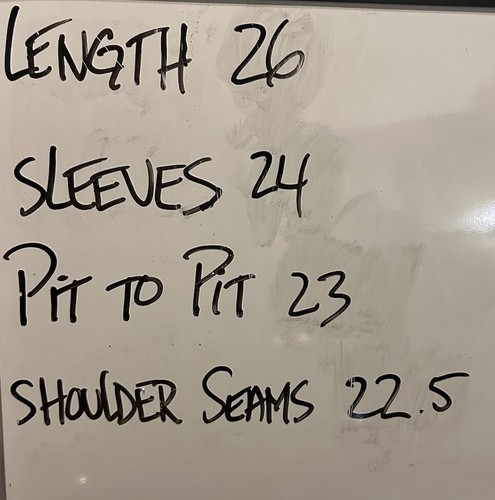 LENGTH 26
SLEEVES 24
PIT TO PIT 23
SHOULDER SEAMS 22.5